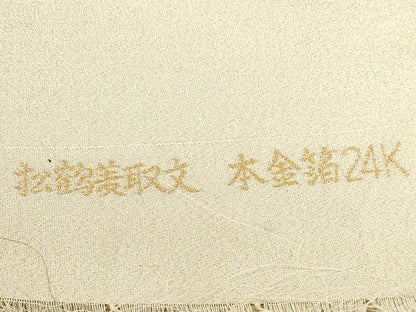 松鶴菱取文 本金箔24K